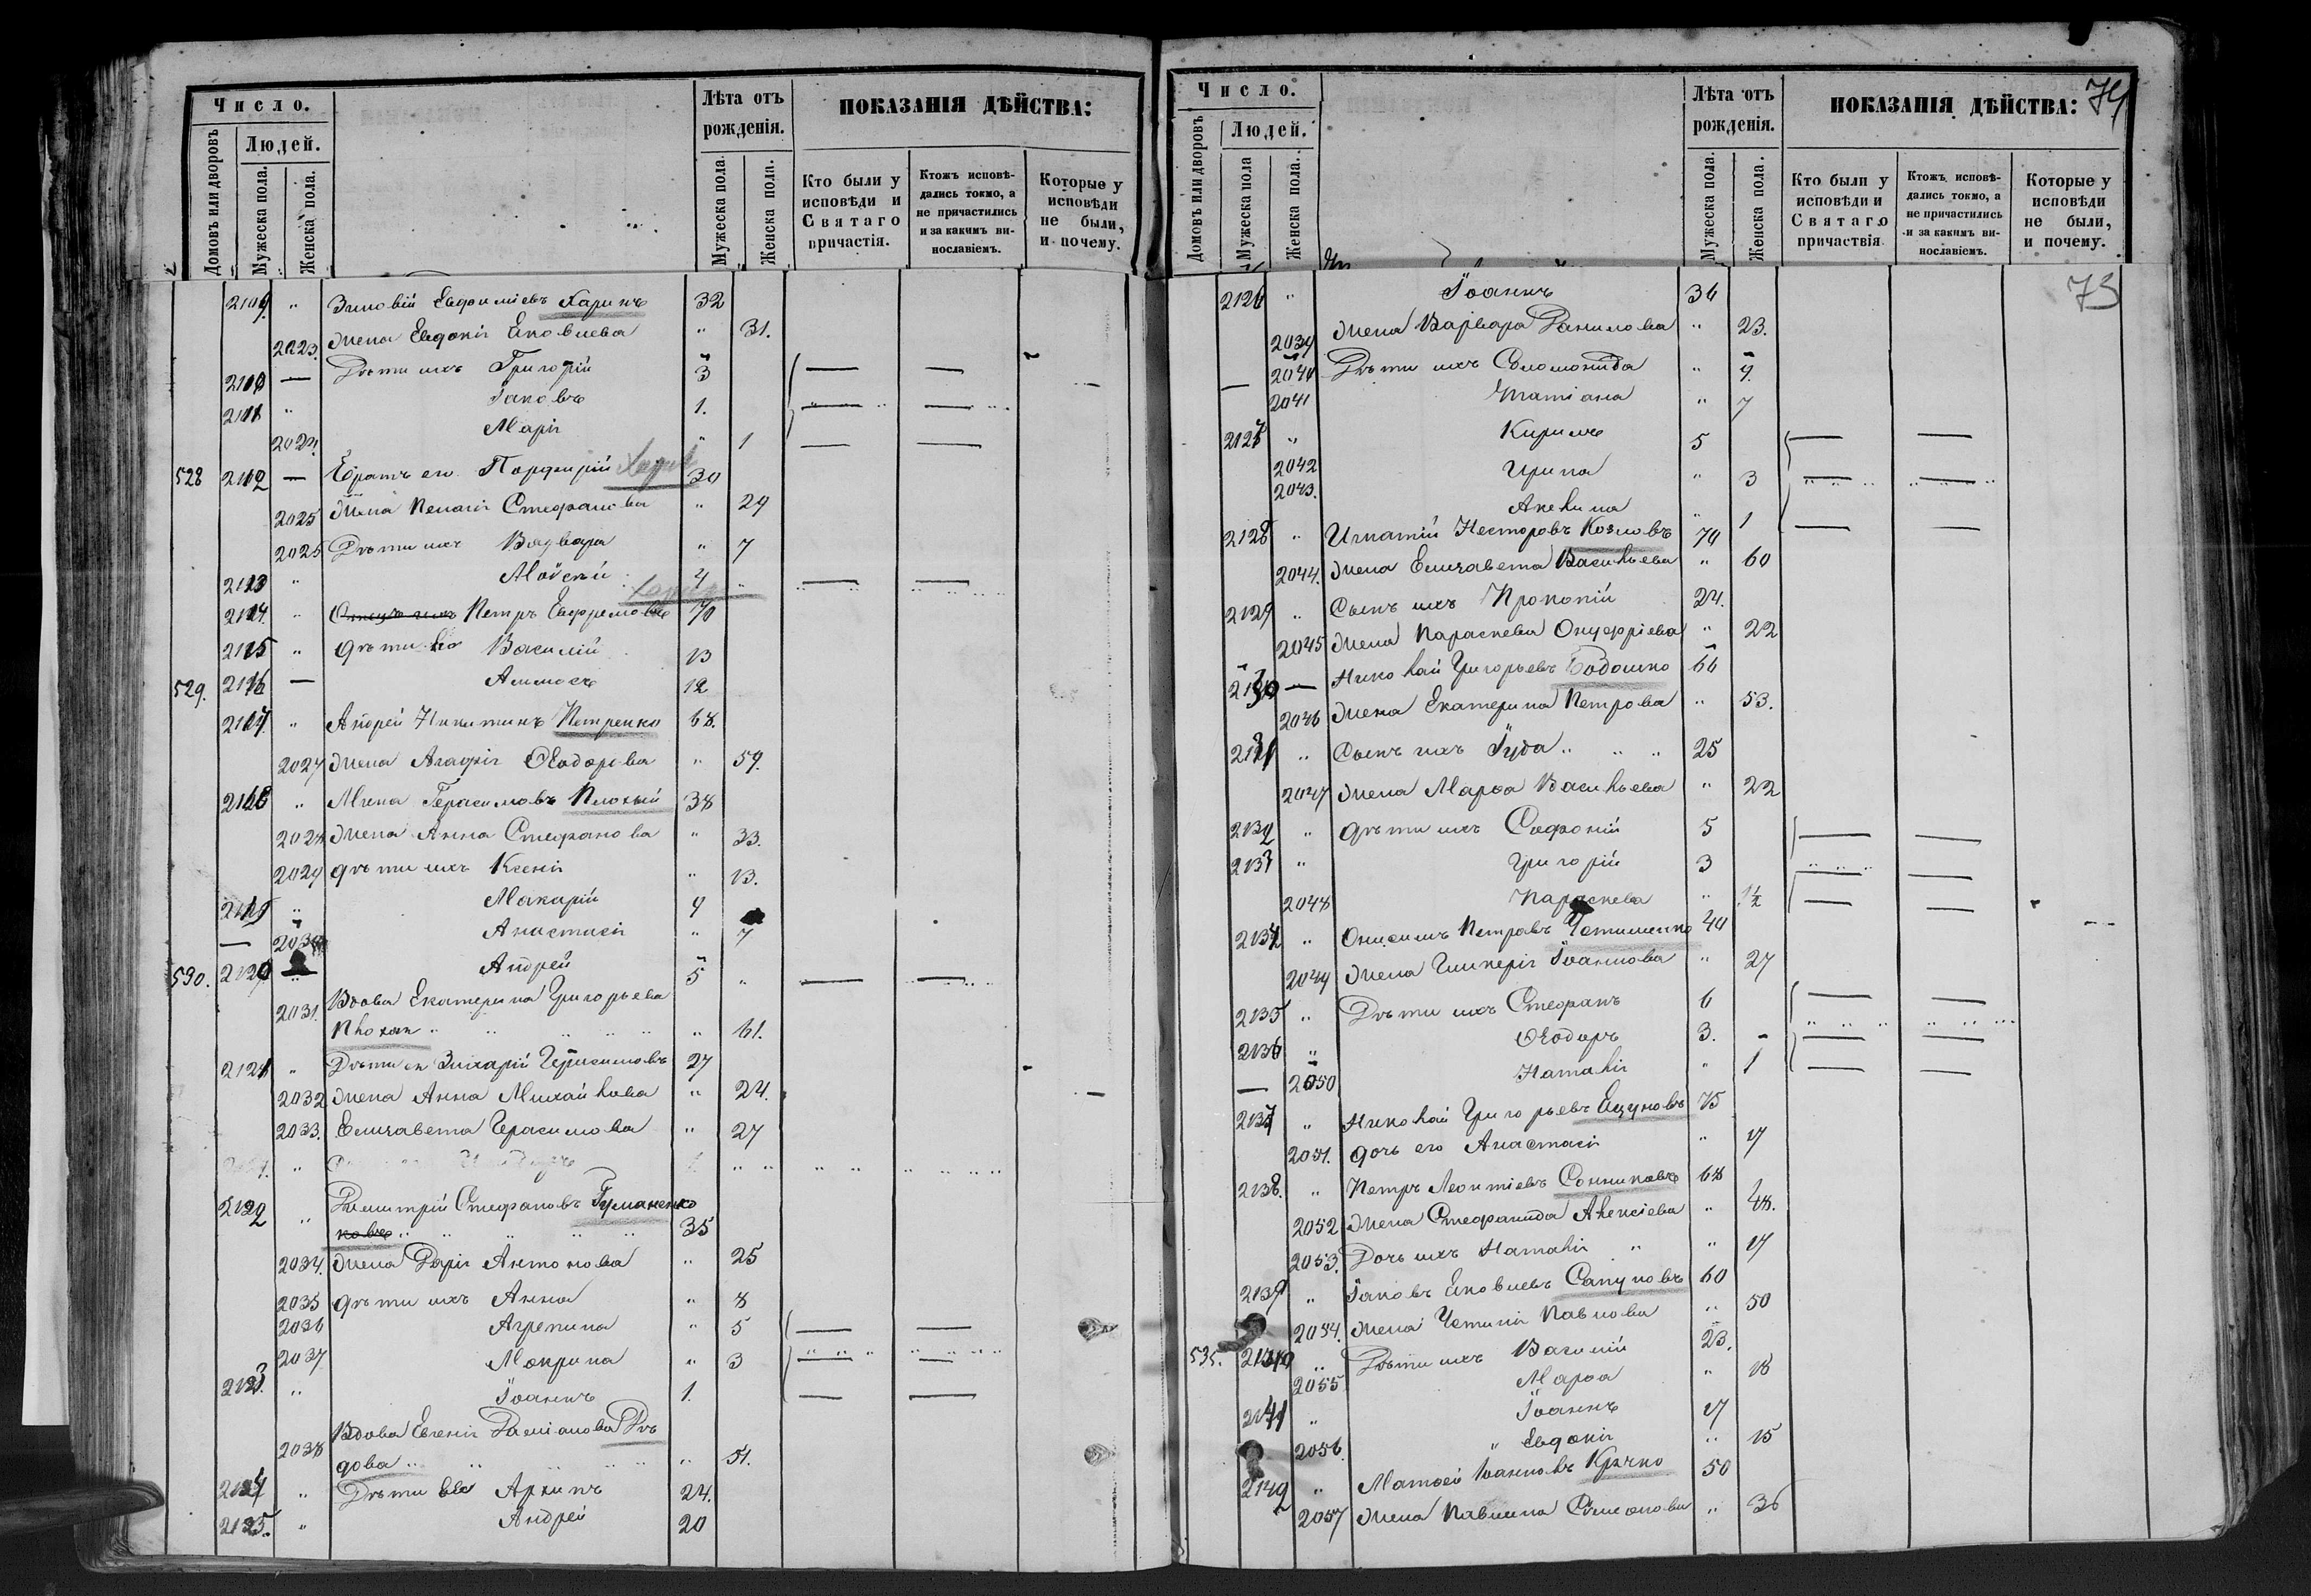 Число.
Лѣта отъ рожденія.
ПОКАЗАНІЯ ДѢЙСТВА:
Домовъ или дворовъ
Людей.
Мужеска пола.
Женска пола.
Мужеска пола.
Женска пола.
Кто были у исповѣди и Святаго причастія.
Ктожъ исповѣдались токмо, а не причастились и за какимъ винословіемъ.
Которые у исповѣди не были, и почему.
2109 " Зиновій Евфиміевъ Харинъ 32
2023. Жена Евдокія Яковлева " 31.
2110 — Дѣти ихъ Григорій 3
2111 " Іаковъ 1.
2024. Марія " 1
528 2112 — Братъ его Порфирій Харин 30
2025 Жена Пелагія Стефанова " 29
2025 Дѣти ихъ Варвара " 7
2113 " Мойсей 4 "
Харин
2114. " Отецъ ихъ Петръ Евфремовъ 70
2115 " Дѣти его Василій 13
529. 2116 — Аммосъ 12
2117. " Андрей Никитинъ Петренко 68.
2027 Жена Агафія Ѳеодорова " 59.
2118 " Мина Герасимовъ Плохый 38
2028 Жена Анна Стефанова " 33.
2029 Дѣти ихъ Ксенія " 13.
2119 " Макарій 9
— 2030 Анастасія " 7
530. 2120 Андрей 5 "
2031. Вдова Екатерина Григорьева
Плохая " " " " " " 61.
2121 " Дѣти ея Захарій Герасимовъ 27
2032 Жена Анна Михайлова " 24.
2033. Елисавета Герасимова " 27
2122 " Димитрій Стефановъ Гуманенко
новъ " " " " " 35
2034. Жена Дарія Антонова " 25
2035 Дѣти ихъ Анна " 8
2036 Агрепина " 5
2037 Мокрина " 3
2123. " Іоаннъ 1.
2038 Вдова Евгенія Даміанова Дѣ
дова " " " " " 51.
2124 " Дѣти ея Архипъ 24.
2125. " Андрей 20
74
Число.
Лѣта отъ рожденія.
ПОКАЗАНІЯ ДѢЙСТВА:
Домовъ или дворовъ
Людей.
Мужеска пола
Женска пола.
Мужеска пола.
Женска пола.
Кто были у исповѣди и Святаго причастія
Ктожъ исповѣдались токмо, а не причастились и за какимъ винословіемъ.
Которые у исповѣди не были, и почему.
73
2126 " Іоаннъ 36
2039 Жена Варвара Данилова " 23.
— 2040 Дѣти ихъ Соломонида " 9.
2041 Татіана " 7
2127 " Кирилъ 5
2042 Ирина " 3
2043. Акелина " 1
2128 " Игнатій Несторовъ Козловъ 70
2044. Жена Елисавета Васильева " 60
2129 " Сынъ ихъ Прокопій 24.
2045 Жена Параскева Онуфріева " 22
2130 — Николай Григорьевъ Бодошко 66
2046 Жена Екатерина Петрова " 53.
2131 " Сынъ ихъ Іуда " " " 25
2047 Жена Марѳа Васильева " 22
2132 " Дѣти ихъ Софроній 5
2133 " Григорій 3
2048 Параскева " 1½
2134 " Онисимъ Петровъ 40
2049 Жена Гликерія Іоаннова " 27
2135 " Дѣти ихъ Стефанъ 6
2136 " Ѳеодоръ 3.
— 2050 Наталія " 1
2137 " Николай Григорьевъ 75
2051. Дочь его Анастасія " 17
2138. " Петръ Леонтіевъ Сонниковъ 68
2052 Жена Стефанида Алексіева " 48.
2053. Дочь ихъ Наталія " " 17
2139 " Іаковъ Яковлевъ Сапуновъ 60
2054. Жена Павлова " 50
535. 2140 " Дѣти ихъ Василій 23.
2055 Марѳа " 18
2141 " Іоаннъ 17
2056. " Евдокія " 15
2142 " Матѳей Іоанновъ Кричко 50
2057 Жена Павлина Симонова " 36